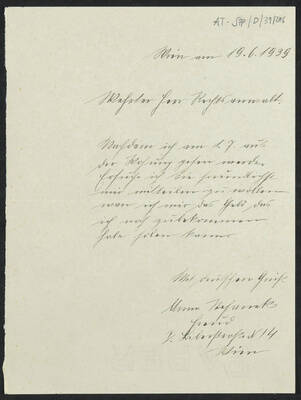 AT-Stp/D/39/286
Wien am 19.6.1939
Wehrter Herr Rechtsanwalt.
Nachdem ich am 1.7. aus
der Wohnung gehen werde
ersuche ich Sie freundlichst
mir mitteilen zu wollen
wan ich mir das Geld das
ich noch zubekommen
habe holen kann.
Mit deutschen Gruß.
Anna
2. N 14
Wien